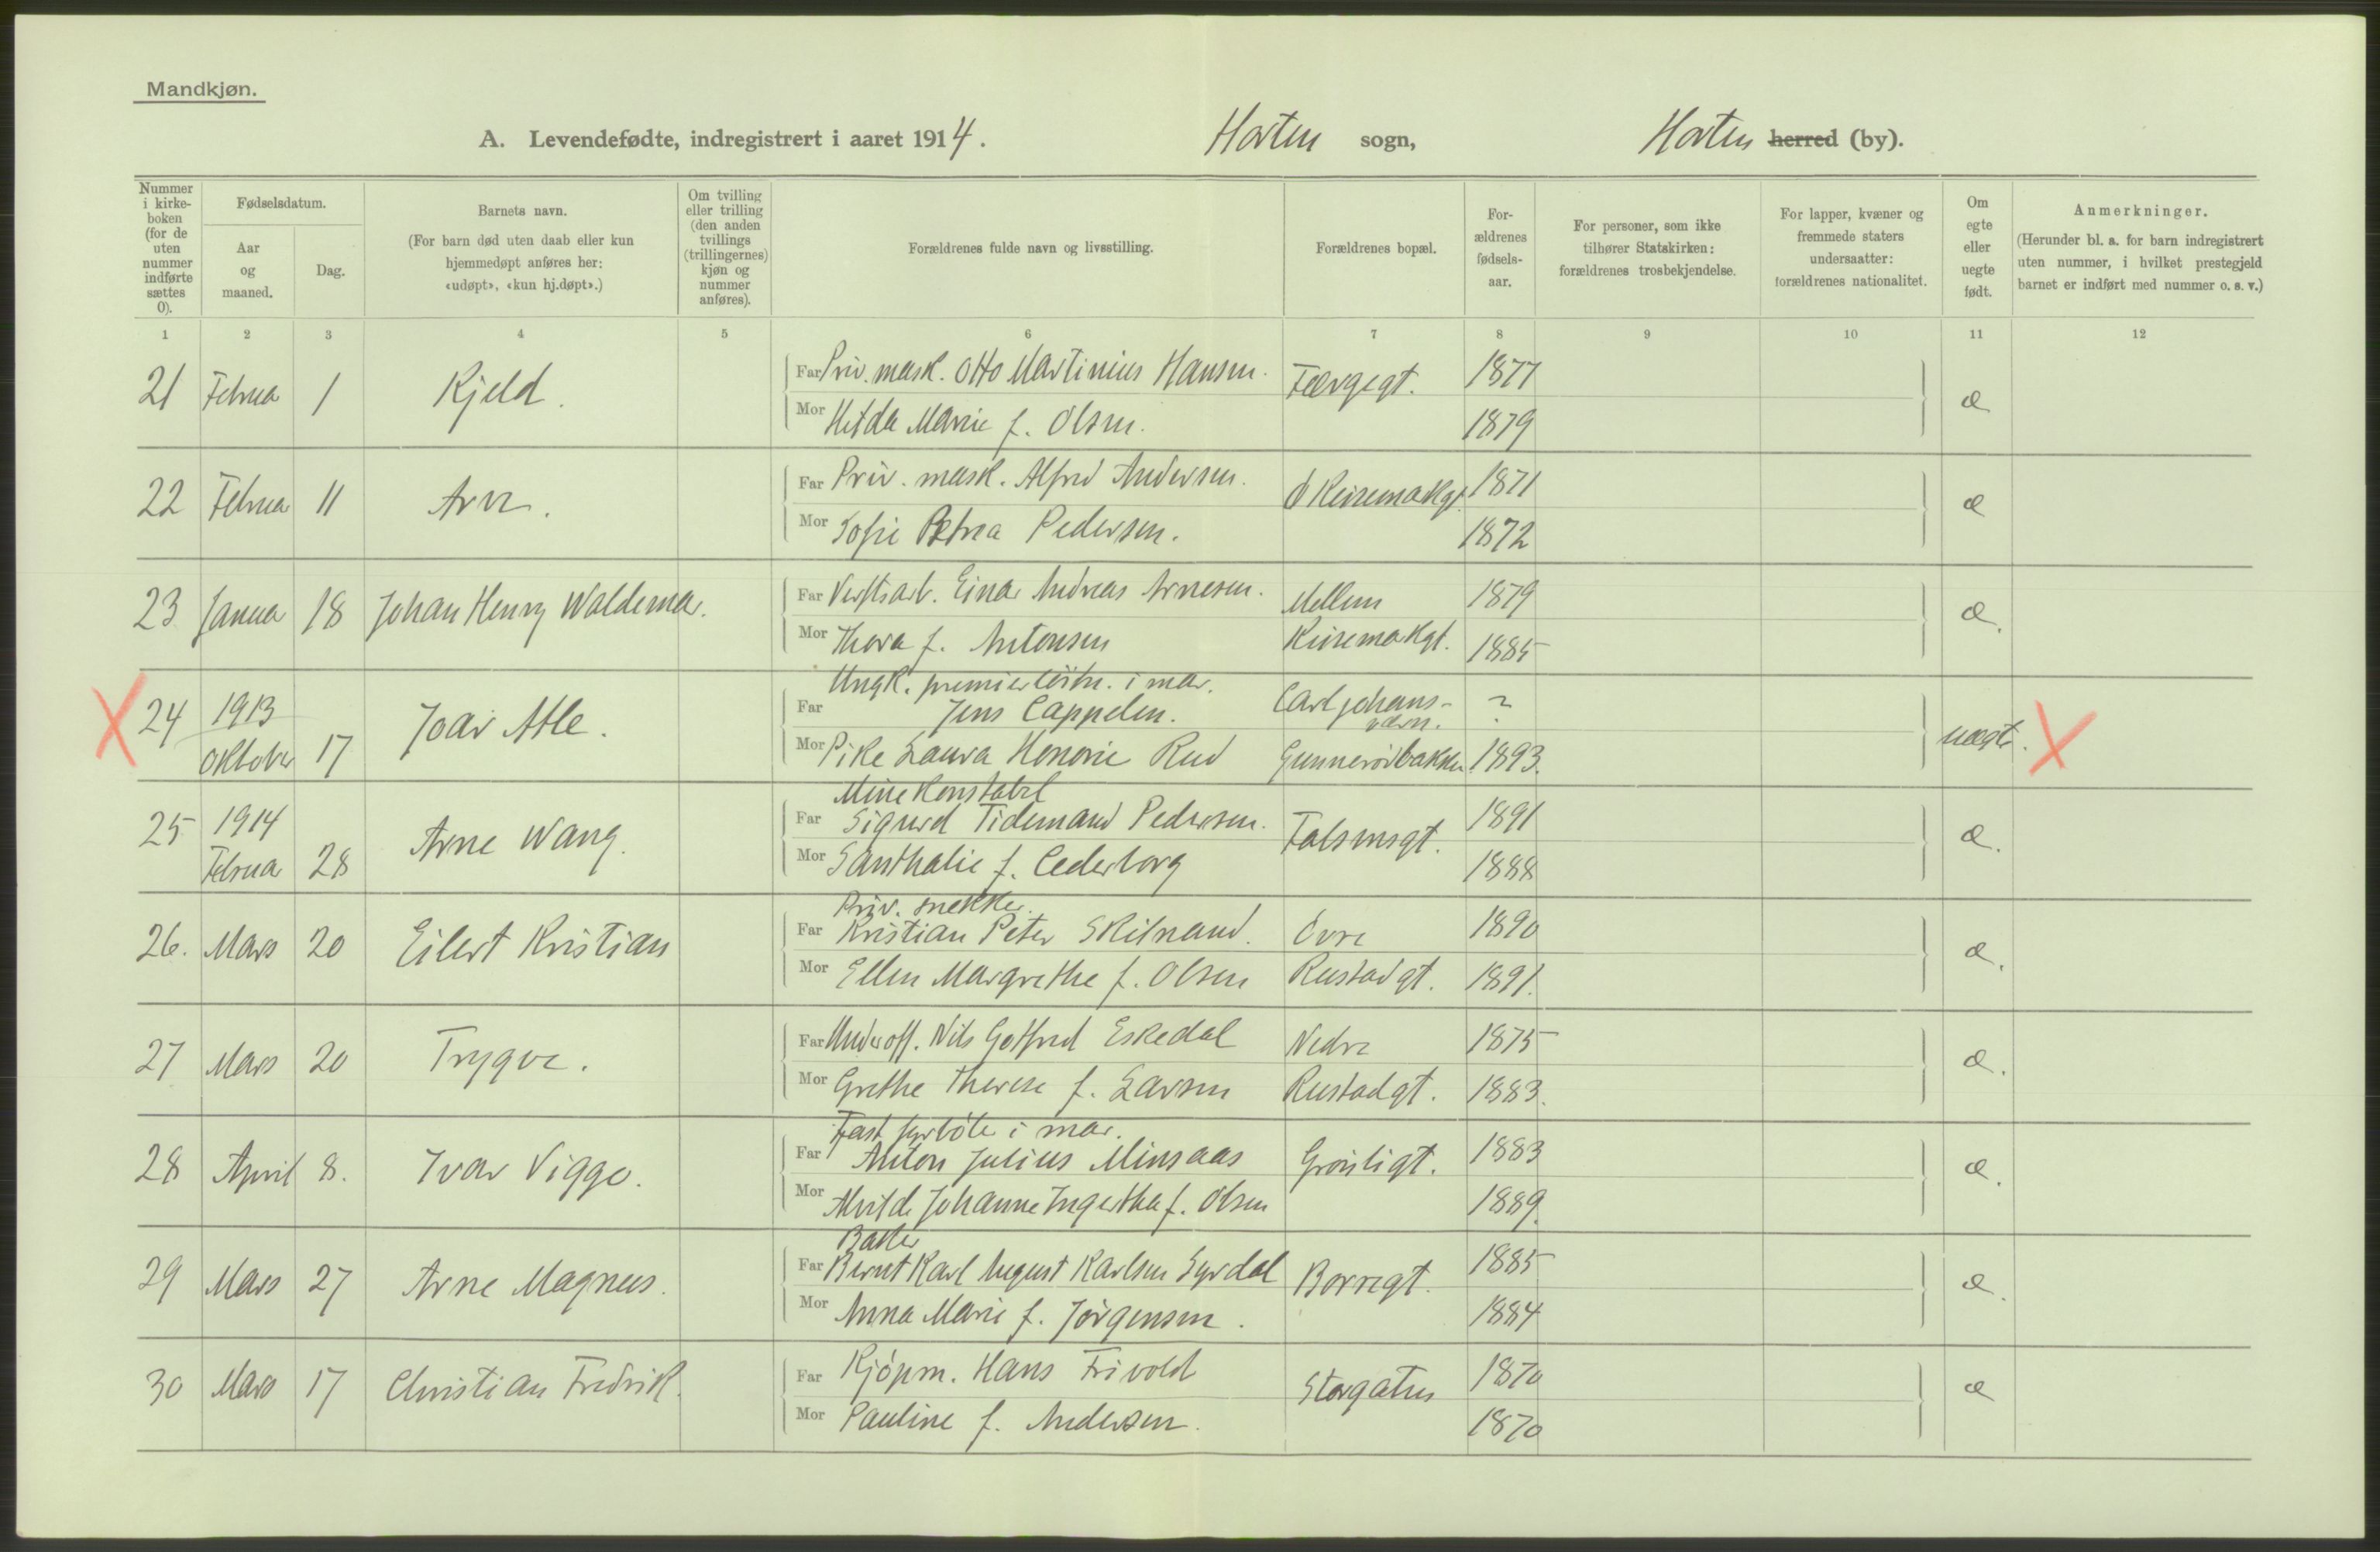 Mandkjøn.
A. Levendefødte, indregistrert i aaret 1914. Horten sogn, Horten herred (by).
Nummer i kirkeboken (for de uten nummer indførte sættes 0).
Fødselsdatum.
Aar og maaned.
Dag.
Barnets navn.
(For barn død uten daab eller kun hjemmedøpt anføres her: «udøpt», «kun hj.døpt».)
Om tvilling eller trilling (den anden tvillings (trillingernes) kjøn og nummer anføres).
Forældrenes fulde navn og livsstilling.
Forældrenes bopæl.
Forældrenes fødselsaar.
For personer, som ikke tilhører Statskirken: forældrenes trosbekjendelse.
For lapper, kvæner og fremmede staters undersaatter: forældrenes nationalitet.
Om egte eller uegte født.
Anmerkninger.
(Herunder bl. a. for barn indregistrert uten nummer, i hvilket prestegjeld barnet er indført med nummer o. s. v.)
1 2 3 4 5 6 7 8 9 10 11 12
21 Februar 1 Kjeld. Far Priv. mask. Otto Martinius Hansen. Færgegt. 1877 æ
Mor Hilda Marie f. Olsen. 1879
22 Februar 11 Arne. Far Priv. mask. Alfred Andersen. 1871 æ
Mor Sofie Petrea Pedersen. 1872
23 Januar 18 Johan Henry Waldemar. Far Verftsarb. Einar Andreas Arnesen. Mellem 1879 æ.
Mor Thora f. Antonsen Keisemakgt. 1885
Ungk. premierløitn. i mar.
24 1913 Oktober 17 Joar Atle. Far Jens Cappelen. Carljohansværn. ? uegte.
Mor Pike Laura Honorie Rud Gunnerödbakken 1893.
Minekonstabel
25 1914 Februar 28 Arne Wang. Far Sigurd Tidemand Pedersen. Falsensgt. 1891 æ.
Mor Santhalie f. Cederborg 1888
Priv. snekker.
26. Mars 20 Eilert Kristian Far Kristian Peter Skilnand. Övre 1890 æ.
Mor Ellen Margrethe f. Olsen Rustadgt. 1891.
27 Mars 20 Trygve. Far Underoff. Nils Gotfred Eskedal Nedre 1875 æ.
Mor Grethe Therese f. Larsen Rustadgt. 1883.
Fast fyrböter i mar.
28 April 8. Ivar Viggo. Far Anton Julius Minsaas Grønligt. 1883 æ.
Mor Alvilde Johanne Ingertha f. Olsen 1889.
29 Mars 27 Arne Magnus. Far Bernt Karl August Karlsen Syrdal Borregt. 1885 æ.
Mor Anna Marie f. Jörgensen. 1884
30 Mars 17 Christian Fredrik. Far Kjöpm. Hans Frivold Storgaten 1870 æ
Mor Pauline f. Andersen. 1870